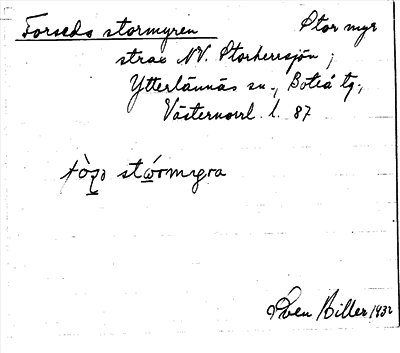 Forseds stormyren Stor myr
strax NV. Storherrsjön;
Ytterlännäs sn., Boteå tg.,
Västernorrl. l. 87
stẃormyra
Sven Biller 1932